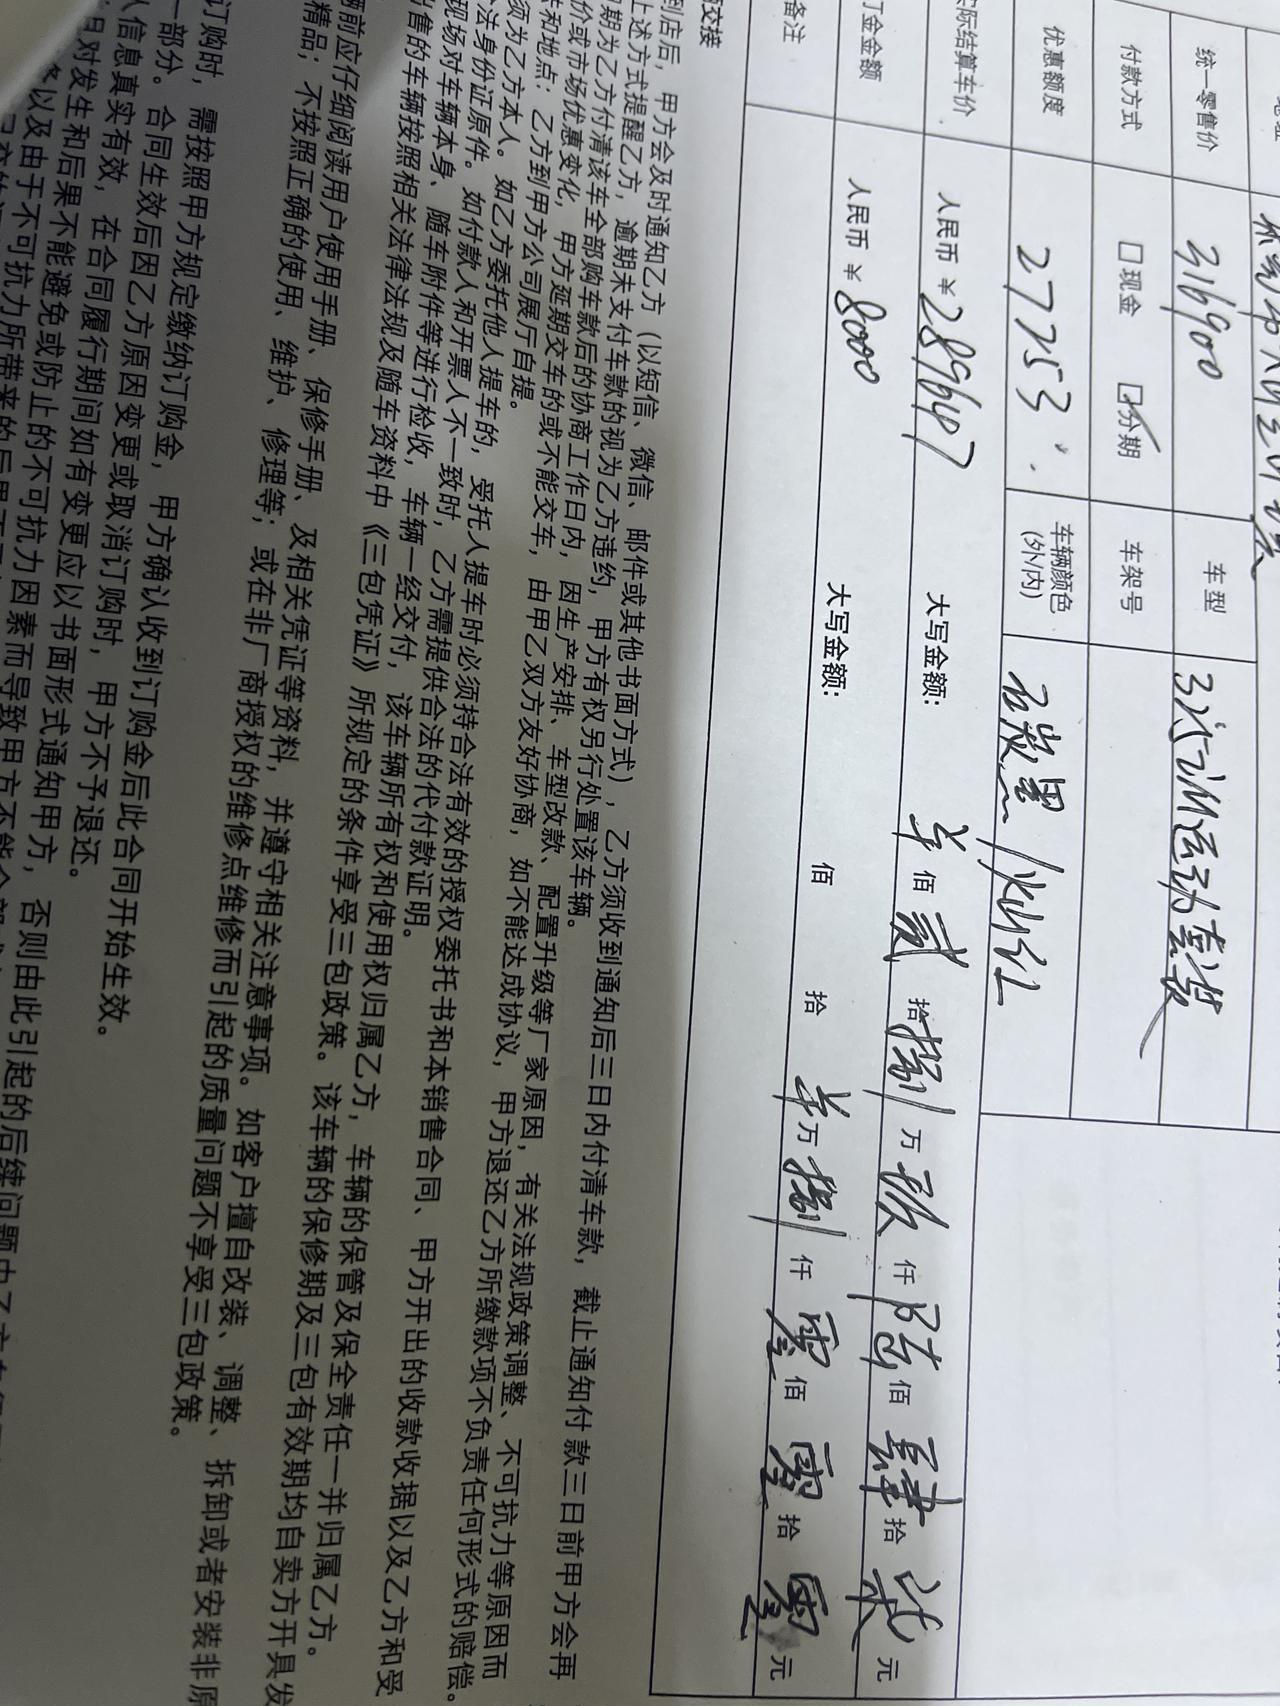 统一零售价 316900 车型 3系 运动套装
付款方式 □现金 ☑分期 车架号
优惠额度 27253 车辆颜色(外/内) 碳黑/灿红
实际结算车价 人民币 ¥ 289647 大写金额： 佰 贰 拾 捌 万 玖 仟 陆 佰 肆 拾 柒 元
订金金额 人民币 ¥ 8000 大写金额： 佰 拾 万 捌 仟 零 佰 零 拾 零 元
备注
交接
到店后，甲方会及时通知乙方（以短信、微信、邮件或其他书面方式），乙方须收到通知后三日内付清车款，截止通知付款三日前甲方会再
上述方式提醒乙方，逾期未支付车款的视为乙方违约，甲方有权另行处置该车辆。
期为乙方付清该车全部购车款后的协商工作日内，因生产安排、车型改款、配置升级等厂家原因，有关法规政策调整、不可抗力等原因而
价或市场优惠变化，甲方延期交车的或不能交车，由甲乙双方友好协商，如不能达成协议，甲方退还乙方所缴款项不负责任何形式的赔偿。
和地点：乙方到甲方公司展厅自提。
须为乙方本人。如乙方委托他人提车的，受托人提车时必须持合法有效的授权委托书和本销售合同、甲方开出的收款收据以及乙方和受
法身份证原件。如付款人和开票人不一致时，乙方需提供合法的代付款证明。
现场对车辆本身、随车附件等进行检收，车辆一经交付，该车辆所有权和使用权归属乙方，车辆的保管及保全责任一并归属乙方。
出售的车辆按照相关法律法规及随车资料中《三包凭证》所规定的条件享受三包政策。该车辆的保修期及三包有效期均自卖方开具发
辆前应仔细阅读用户使用手册、保修手册、及相关凭证等资料，并遵守相关注意事项。如客户擅自改装、调整、拆卸或者安装非原
精品；不按照正确的使用、维护、修理等；或在非厂商授权的维修点维修而引起的质量问题不享受三包政策。
订购时，需按照甲方规定缴纳订购金，甲方确认收到订购金后此合同开始生效。
部分。合同生效后因乙方原因变更或取消订购时，甲方不予退还。
信息真实有效，在合同履行期间如有变更应以书面形式通知甲方，否则由此引起的后续问题由乙方
对发生和后果不能避免或防止的不可抗力因素而导致甲方不能
以及由于不可抗力所带来的后果